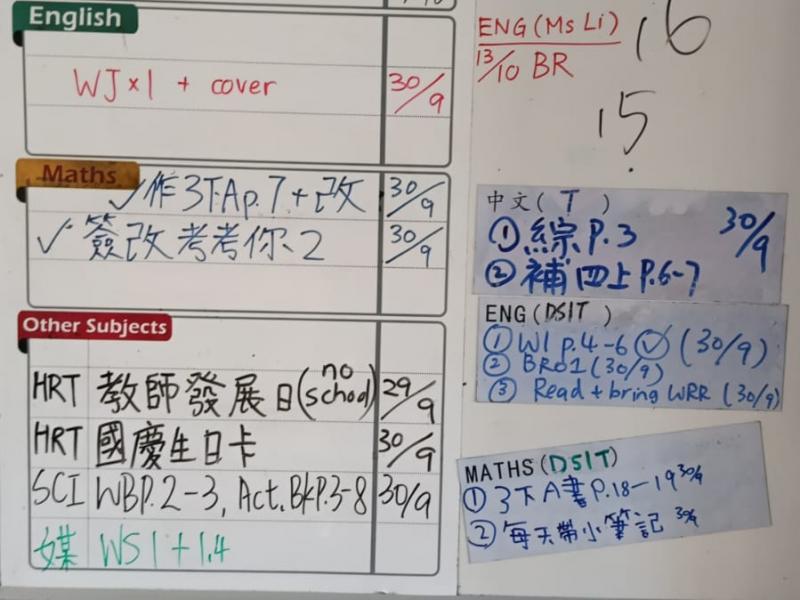 English
WJ×1 + cover 30/9
Maths
✓作3下A p.7 + 改 30/9
✓簽改考考你、2 30/9
Other Subjects
HRT 教師發展日(no school) 29/9
HRT 國慶生日卡 30/9
SCI WBP.2-3, Act.BkP.3-8 30/9
媒 WS 1 + 1.4
ENG (Ms Li)
13/10 BR
16
15
中文( T )
① 綜 P.3 30/9
② 補四上 P.6-7
ENG (DSIT )
① W1 p.4-6 ✓ (30/9)
② BR01 (30/9)
③ Read + bring WRR (30/9)
MATHS (DSIT)
① 3下A書 P.18-19 30/9
② 每天帶小筆記 30/9